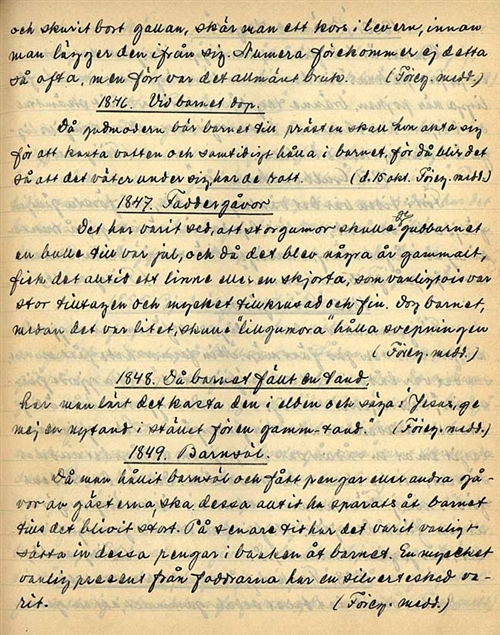 och skurit bort gallan, skär man ett kors i levern, innan
man lägger den ifrån sig. Numera förekommer ej detta
så ofta, men förr var det allmänt bruk. (Föreg. medd.)
1846. Vid barnet dop.
Då gudmodern bär barnet till prästen skall hon akta sig
för att kasta vatten och samtidigt hålla i barnet, för då blir det
så att det väter under sig, har de sagt. (d. 15 okt. Föreg. medd.)
1847. Faddergåvor
Det har varit sed, att storgumor skulle ge gudbarnet
en bulle till var jul, och då det blev några år gammalt,
fick det alltid ett linne eller en skjorta, som vanligtvis var
stor tilltagen och mycket tillkrusad och fin. Dog barnet,
medan det var litet, skulle "lillgumora" hålla svepningen
(Föreg. medd.)
1848. Då barnet fällt en tand,
har man lärt det kasta den i elden och säga: Jesus, ge
mej en nytand i stället för en gamm-tand." (Föreg. medd.)
1849. Barnsöl.
Då man hållit barnsöl och fått pengar eller andra gå-
vor av gästerna ska dessa alltid ha sparats åt barnet
tills det blivit stort. På senare tid har det varit vanligt
sätta in dessa pengar i banken åt barnet. En mycket
vanlig present från faddrarna har en silvertesked va-
rit. (Föreg. medd.)